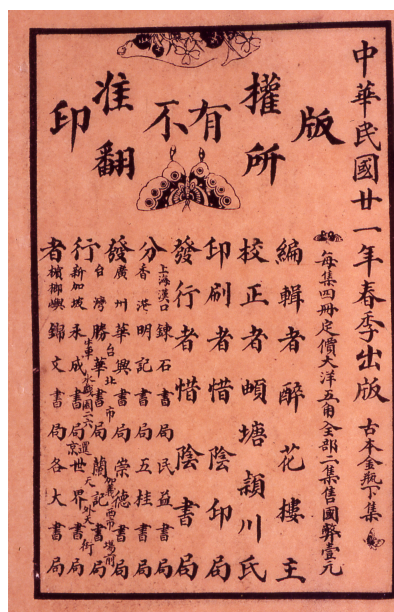 中華民國廿一年春季出版 古本金瓶下集
每集四冊定價大洋五角全部二集售國幣壹元
版權所有不准翻印
編輯者醉花樓主
校正者頔塘穎川氏
印刷者惜陰印局
發行者惜陰書局
分發行者
上海漢口錬石書局民益書局
香港明記書局五桂書局
廣州華興書局崇德書局
台灣勝華書局蘭記書局
台北市
嘉義西市場前
新加坡永成書局世界書局
檳榔嶼錦文書局各大書局